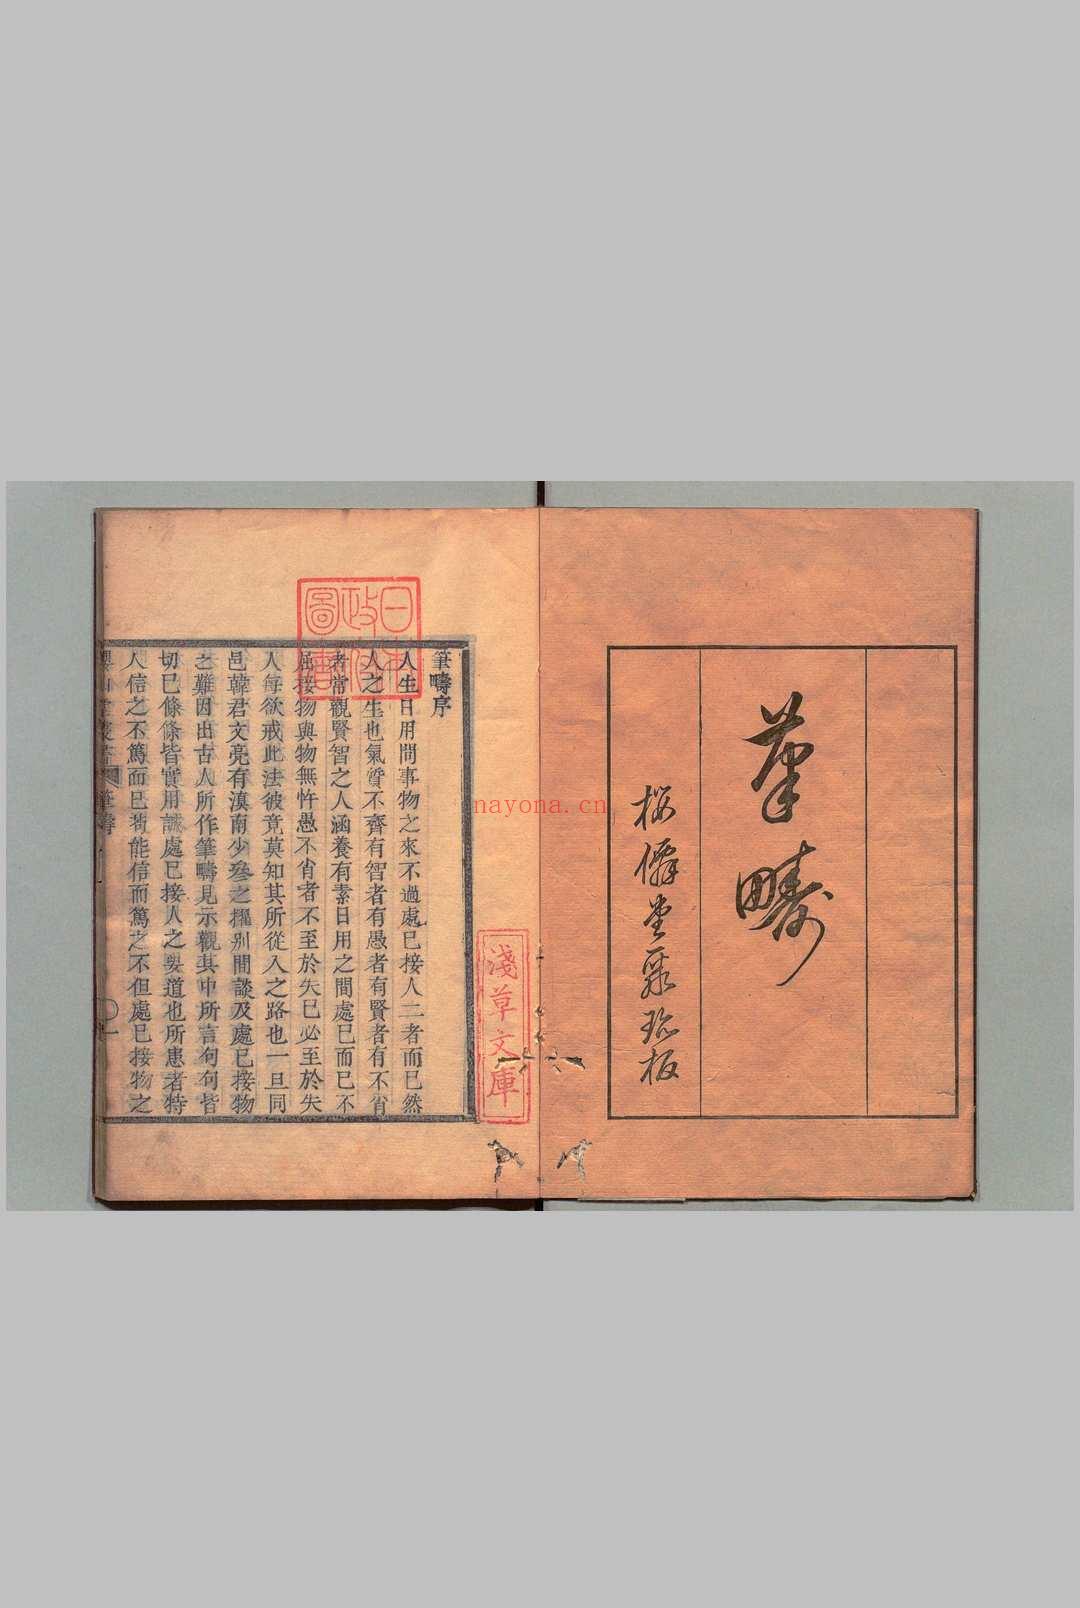 筆疇
櫻僊堂藏板
筆疇序
人生日用間事物之來不過處已接人二者而已然
人之生也氣質不齊有智者有愚者有賢者有不肖
者常觀賢智之人涵養有素日用之間處已而已不
屈接物與物無忤愚不肖者不至於失已必至於失
人每欲戒此法彼竟莫知其所從入之路也一旦同
邑韓君文亮有滇南少參之擢別間談及處已接物
之難因出古人所作筆疇見示觀其中所言句句皆
切已條條皆實用誠處已接人之要道也所患者特
人信之不篤而已苟能信而篤之不但處已接物之
筆疇
日本
政府
圖書
淺草文庫
nayona.cn